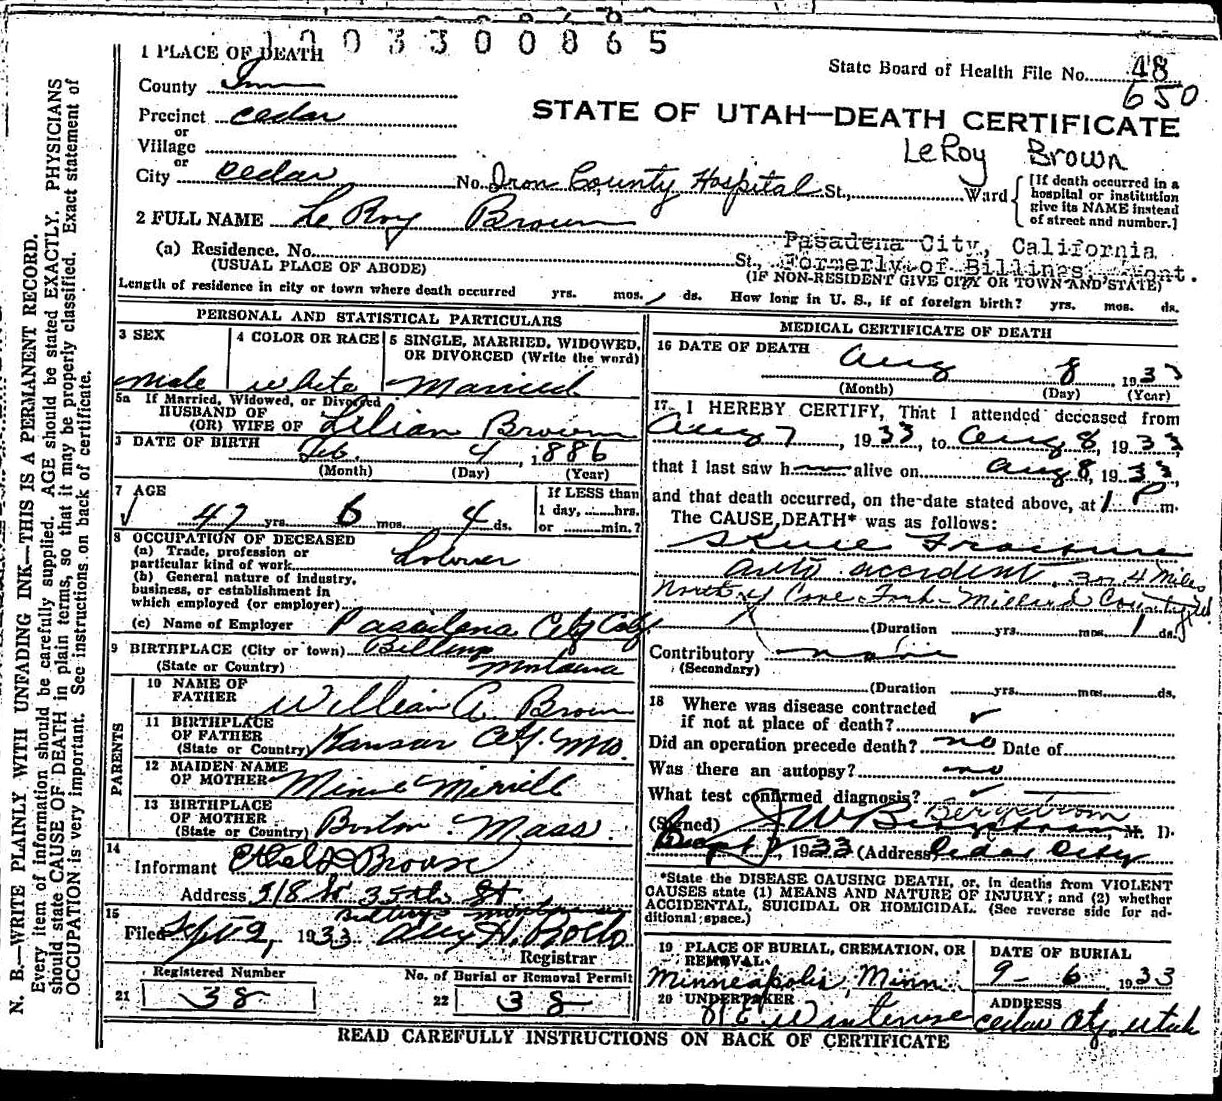 1003300865
1 PLACE OF DEATH
State Board of Health File No. 48
650
County Iron
Precinct Cedar
or
Village
or
City Cedar No. Iron County Hospital St., Ward
STATE OF UTAH—DEATH CERTIFICATE
LeRoy Brown
[If death occurred in a
hospital or institution
give its NAME instead
of street and number.]
2 FULL NAME Le Roy Brown
Pasadena City, California
(a) Residence. No. St., Formerly of Billings, Mont.
(USUAL PLACE OF ABODE) (IF NON-RESIDENT GIVE CITY OR TOWN AND STATE)
Length of residence in city or town where death occurred yrs. mos. 1 ds. How long in U. S., if of foreign birth? yrs. mos. ds.
PERSONAL AND STATISTICAL PARTICULARS
3 SEX
male
4 COLOR OR RACE
white
5 SINGLE, MARRIED, WIDOWED,
OR DIVORCED (Write the word)
Married
5a If Married, Widowed, or Divorced
HUSBAND OF
(OR) WIFE OF Lilian Brown
3 DATE OF BIRTH Feb. 4, 1886
(Month) (Day) (Year)
7 AGE
47 yrs. 6 mos. 4 ds.
If LESS than
1 day, hrs.
or min.?
8 OCCUPATION OF DECEASED
(a) Trade, profession or
particular kind of work
(b) General nature of industry,
business, or establishment in
which employed (or employer)
(c) Name of Employer Pasadena City Calf
9 BIRTHPLACE (City or town) Billings
(State or Country) Montana
PARENTS
10 NAME OF
FATHER William A. Brown
11 BIRTHPLACE
OF FATHER
(State or Country) Kansas City. Mo.
12 MAIDEN NAME
OF MOTHER Minnie Merrill
13 BIRTHPLACE
OF MOTHER
(State or Country) Boston. Mass.
14
Informant Brown
Address 318 35th St
Billings Montana
15
Filed Sept 2, 1933
Registrar
Registered Number
21 38
No. of Burial or Removal Permit
22 38
MEDICAL CERTIFICATE OF DEATH
16 DATE OF DEATH Aug 8, 1933
(Month) (Day) (Year)
17 I HEREBY CERTIFY, That I attended deceased from
Aug 7, 1933, to Aug 8, 1933
that I last saw h alive on Aug 8, 1933,
and that death occurred, on the date stated above, at 1 P m.
The CAUSE DEATH* was as follows:
Skull Fracture
auto accident, 3 or 4 miles
North of Cove Fork - Millard County
(Duration yrs. mos. 1 ds.
Contributory none
(Secondary)
(Duration yrs. mos. ds.
18 Where was disease contracted
if not at place of death? ✓
Did an operation precede death? no Date of
Was there an autopsy? no
What test confirmed diagnosis? ✓
Bergstrom
(Signed) J W Bergstrom, M. D.
Sept 2, 1933 (Address) Cedar City
*State the DISEASE CAUSING DEATH, or, in deaths from VIOLENT
CAUSES state (1) MEANS AND NATURE OF INJURY; and (2) whether
ACCIDENTAL, SUICIDAL OR HOMICIDAL. (See reverse side for ad-
ditional space.)
19 PLACE OF BURIAL, CREMATION, OR
REMOVAL
Minneapolis, Minn.
DATE OF BURIAL
9 - 6, 1933
20 UNDERTAKER
ADDRESS
Cedar City, Utah
READ CAREFULLY INSTRUCTIONS ON BACK OF CERTIFICATE
N. B.—WRITE PLAINLY WITH UNFADING INK—THIS IS A PERMANENT RECORD.
Every item of information should be carefully supplied. AGE should be stated EXACTLY. PHYSICIANS
should state CAUSE OF DEATH in plain terms, so that it may be properly classified. Exact statement of
OCCUPATION is very important. See instructions on back of certificate.